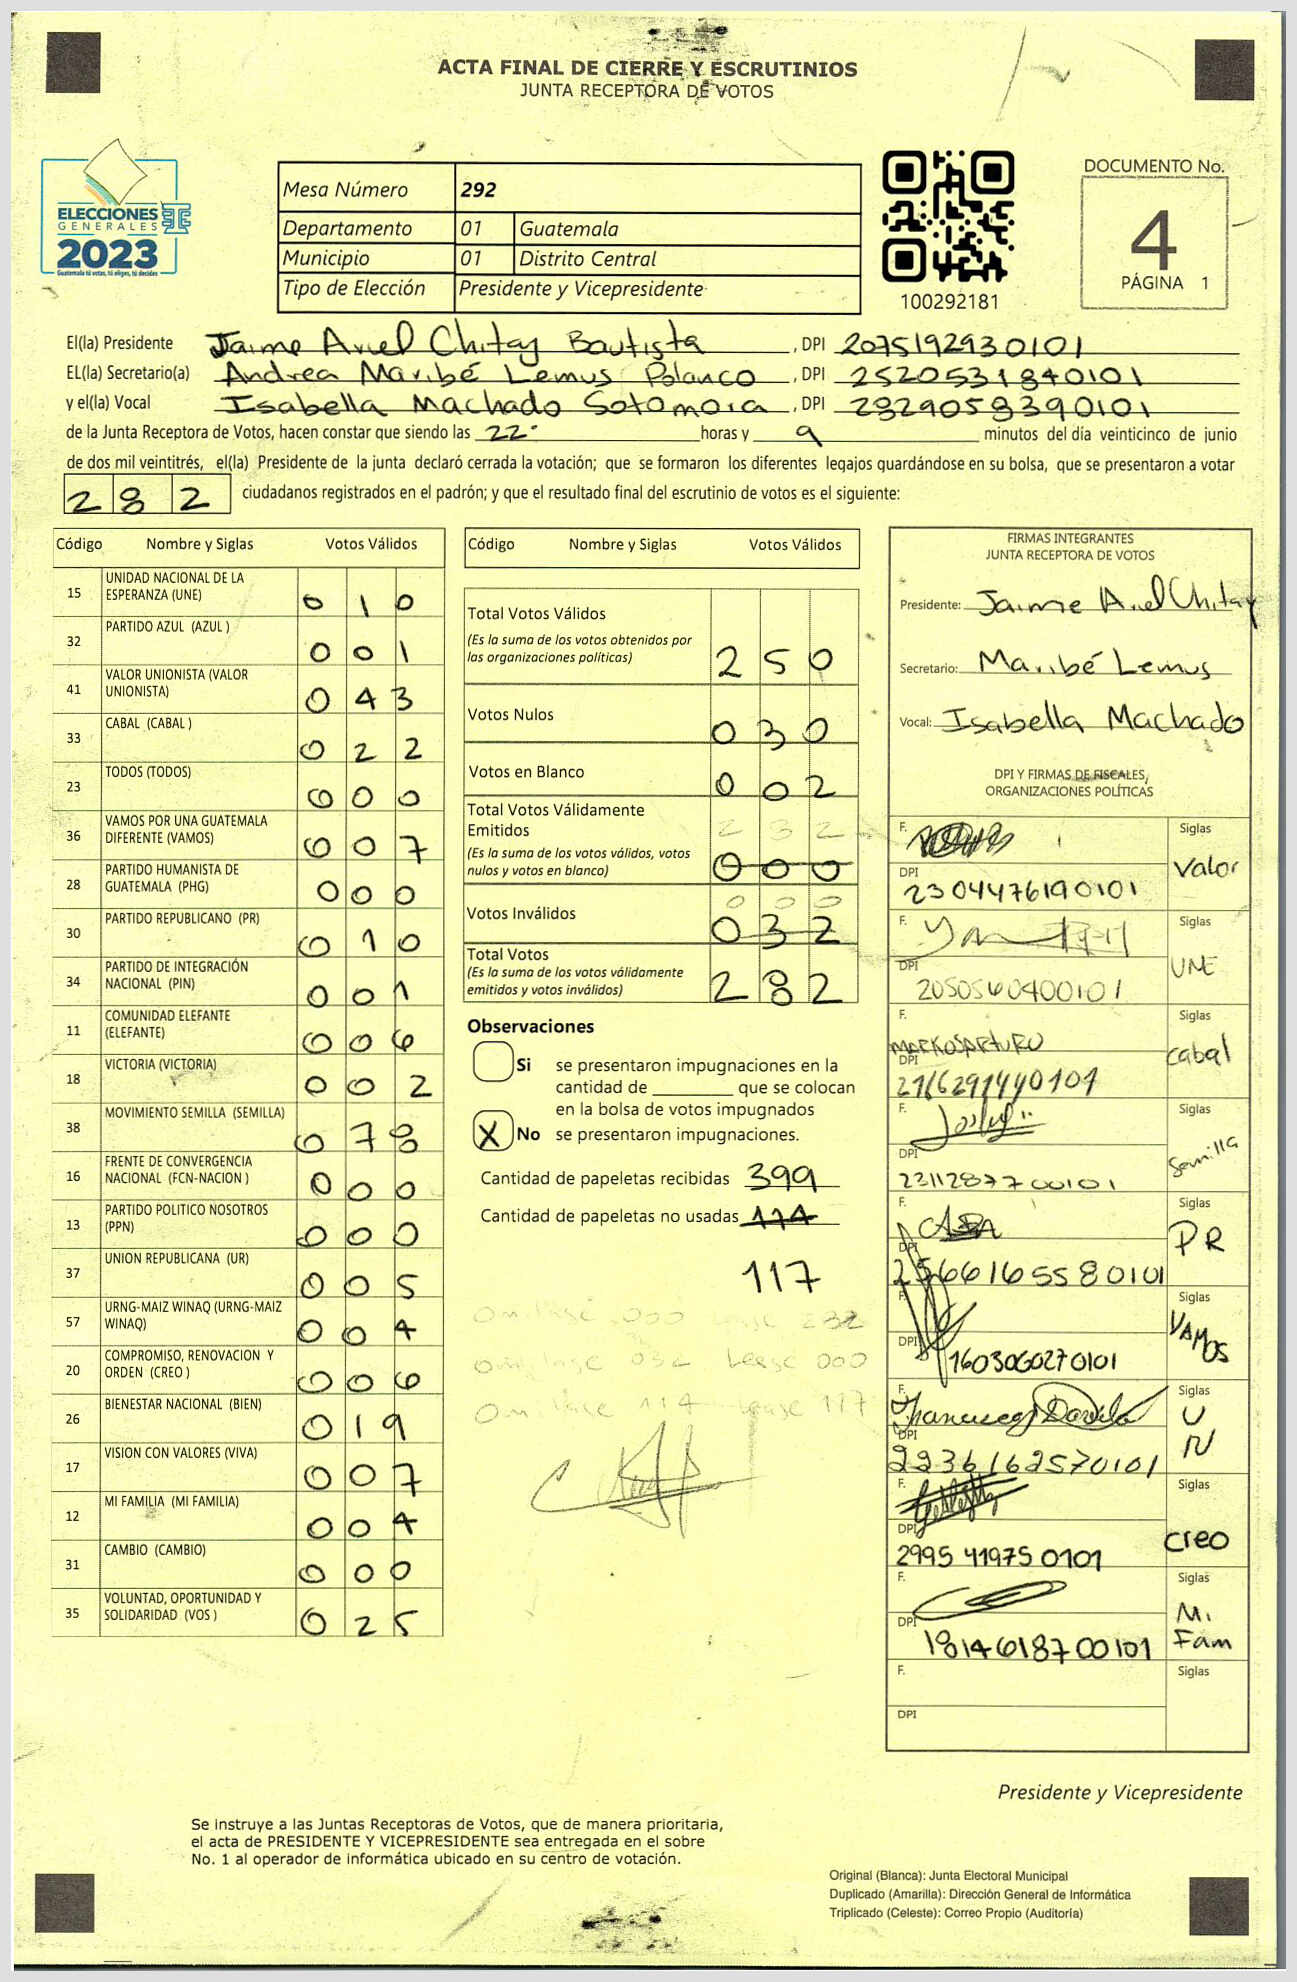 ACTA FINAL DE CIERRE Y ESCRUTINIOS
JUNTA RECEPTORA DE VOTOS
ELECCIONES
GENERALES
2023
Guatemala tú votas, tú eliges, tú decides
Mesa Número 292
Departamento 01 Guatemala
Municipio 01 Distrito Central
Tipo de Elección Presidente y Vicepresidente
100292181
DOCUMENTO No.
4
PÁGINA 1
El(la) Presidente Jaime Ariel Chitay Bautista, DPI 2075192930101
EL(la) Secretario(a) Andrea Maribé Lemus Polanco, DPI 2520531840101
y el(la) Vocal Isabella Machado Sotomora, DPI 2829058390101
de la Junta Receptora de Votos, hacen constar que siendo las 22 horas y 9 minutos del día veinticinco de junio
de dos mil veintitrés, el(la) Presidente de la junta declaró cerrada la votación; que se formaron los diferentes legajos guardándose en su bolsa, que se presentaron a votar
282 ciudadanos registrados en el padrón; y que el resultado final del escrutinio de votos es el siguiente:
Código Nombre y Siglas Votos Válidos
15 UNIDAD NACIONAL DE LA ESPERANZA (UNE) 010
32 PARTIDO AZUL (AZUL ) 001
41 VALOR UNIONISTA (VALOR UNIONISTA) 043
33 CABAL (CABAL ) 022
23 TODOS (TODOS) 000
36 VAMOS POR UNA GUATEMALA DIFERENTE (VAMOS) 007
28 PARTIDO HUMANISTA DE GUATEMALA (PHG) 000
30 PARTIDO REPUBLICANO (PR) 010
34 PARTIDO DE INTEGRACIÓN NACIONAL (PIN) 001
11 COMUNIDAD ELEFANTE (ELEFANTE) 006
18 VICTORIA (VICTORIA) 002
38 MOVIMIENTO SEMILLA (SEMILLA) 078
16 FRENTE DE CONVERGENCIA NACIONAL (FCN-NACION ) 000
13 PARTIDO POLITICO NOSOTROS (PPN) 000
37 UNION REPUBLICANA (UR) 005
57 URNG-MAIZ WINAQ (URNG-MAIZ WINAQ) 004
20 COMPROMISO, RENOVACION Y ORDEN (CREO ) 006
26 BIENESTAR NACIONAL (BIEN) 019
17 VISION CON VALORES (VIVA) 007
12 MI FAMILIA (MI FAMILIA) 004
31 CAMBIO (CAMBIO) 000
35 VOLUNTAD, OPORTUNIDAD Y SOLIDARIDAD (VOS ) 025
Código Nombre y Siglas Votos Válidos
Total Votos Válidos 250
(Es la suma de los votos obtenidos por
las organizaciones políticas)
Votos Nulos 030
Votos en Blanco 002
Total Votos Válidamente Emitidos 232
000
(Es la suma de los votos válidos, votos
nulos y votos en blanco)
Votos Inválidos 000
032
Total Votos 282
(Es la suma de los votos válidamente
emitidos y votos inválidos)
Observaciones
Si se presentaron impugnaciones en la
cantidad de ________ que se colocan
en la bolsa de votos impugnados
X No se presentaron impugnaciones.
Cantidad de papeletas recibidas 399
Cantidad de papeletas no usadas 114
117
Omitase 000 Lease 232
Omitase 032 Lease 000
Omitase 114 Lease 117
FIRMAS INTEGRANTES
JUNTA RECEPTORA DE VOTOS
Presidente: Jaime Ariel Chitay
Secretario: Maribé Lemus
Vocal: Isabella Machado
DPI Y FIRMAS DE FISCALES,
ORGANIZACIONES POLÍTICAS
F. Siglas Valor
DPI 2304476190101
F. Siglas UNE
DPI 2050560400101
F. MARKOSARTURO Siglas cabal
DPI 2166291440101
F. Siglas Semilla
DPI 2311287700101
F. Siglas PR
DPI 2566165580101
F. Siglas VAMOS
DPI 1603060270101
F. Francisco Davila Siglas UN
DPI 2236162570101
F. Siglas creo
DPI 2995419750101
F. Siglas Mi Fam
DPI 1814618700101
F. Siglas
DPI
Presidente y Vicepresidente
Se instruye a las Juntas Receptoras de Votos, que de manera prioritaria,
el acta de PRESIDENTE Y VICEPRESIDENTE sea entregada en el sobre
No. 1 al operador de informática ubicado en su centro de votación.
Original (Blanca): Junta Electoral Municipal
Duplicado (Amarilla): Dirección General de Informática
Triplicado (Celeste): Correo Propio (Auditoría)